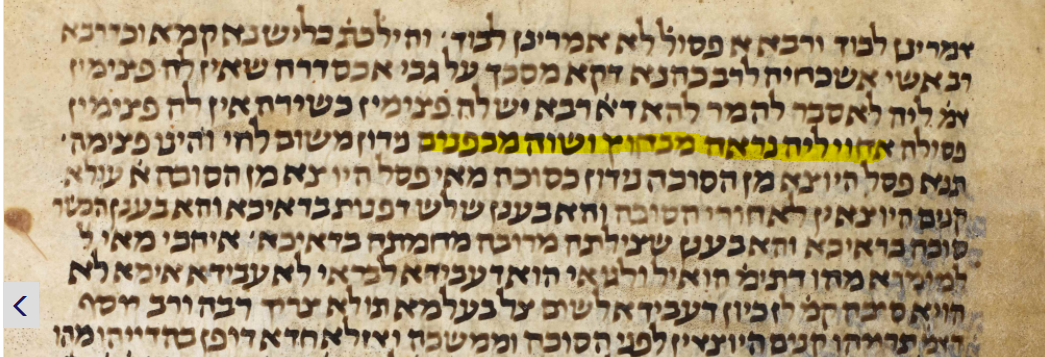 אמרינן לבוד ורבא א פסול לא אמרינן לבוד׳ והילכת׳ כלישנא קמא וכדרבא
רב אשי אשכחיה לרב כהנא דקא מסכך על גבי אכסדרה שאין לה פצימין
אמ׳ ליה לא סבר להמר להא דא׳ רבא יש לה פצימין כשירה אין לה פצימין
פסולה אחוי ליה נראה מבחוץ ושוה מבפנים נדון משום לחי והינו פצימה׳
תנא פסל היוצא מן הסוכה נידון כסוכה מאי פסל היוצא מן הסוכה א׳ עולא
קנים היוצאין לאחורי הסוכה והא בענן שלש דפנות בדאיכא והא בענן הכשר
סוכה בדאיכא והא בענן שצילתה מרובה מחמתה בדאיכא׳ אי הכי מאי ל
למימרא מהו דתימ׳ הואיל ולגואי הוא דעבידא לבראי לא עבידא אימא לא
הויא סוכה קמ׳ ל׳ כיון דעביד לשום צל בעלמא תו לא צריך רבה ורב יוסף
דאמ׳ תרויהו קנים היוצאין לפני הסוכה וממשכה ואזלא חדא דופן בהדייהו מהו